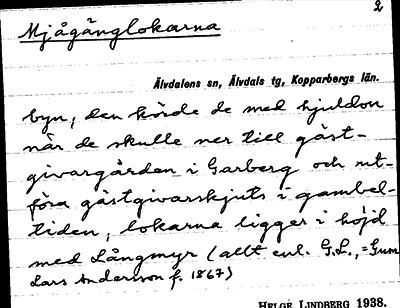 2
Mjågånglokarna
Älvdalens sn, Älvdals tg, Kopparbergs län.
byn, den körde de med hjuldon
när de skulle ner till gäst-
givargården i Garberg och ut-
föra gästgivarskjuts i gambel-
tiden, lokarna ligger i höjd
med Långmyr (allt enl. G.L., = Gum
Lars Andersson f. 1867)
HELGE LINDBERG 1938.